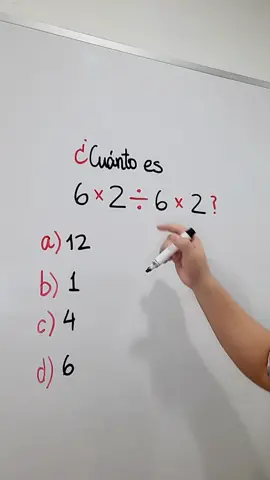 ¿Cuánto es
6 × 2 ÷ 6 × 2 ?
a) 12
b) 1
c) 4
d) 6